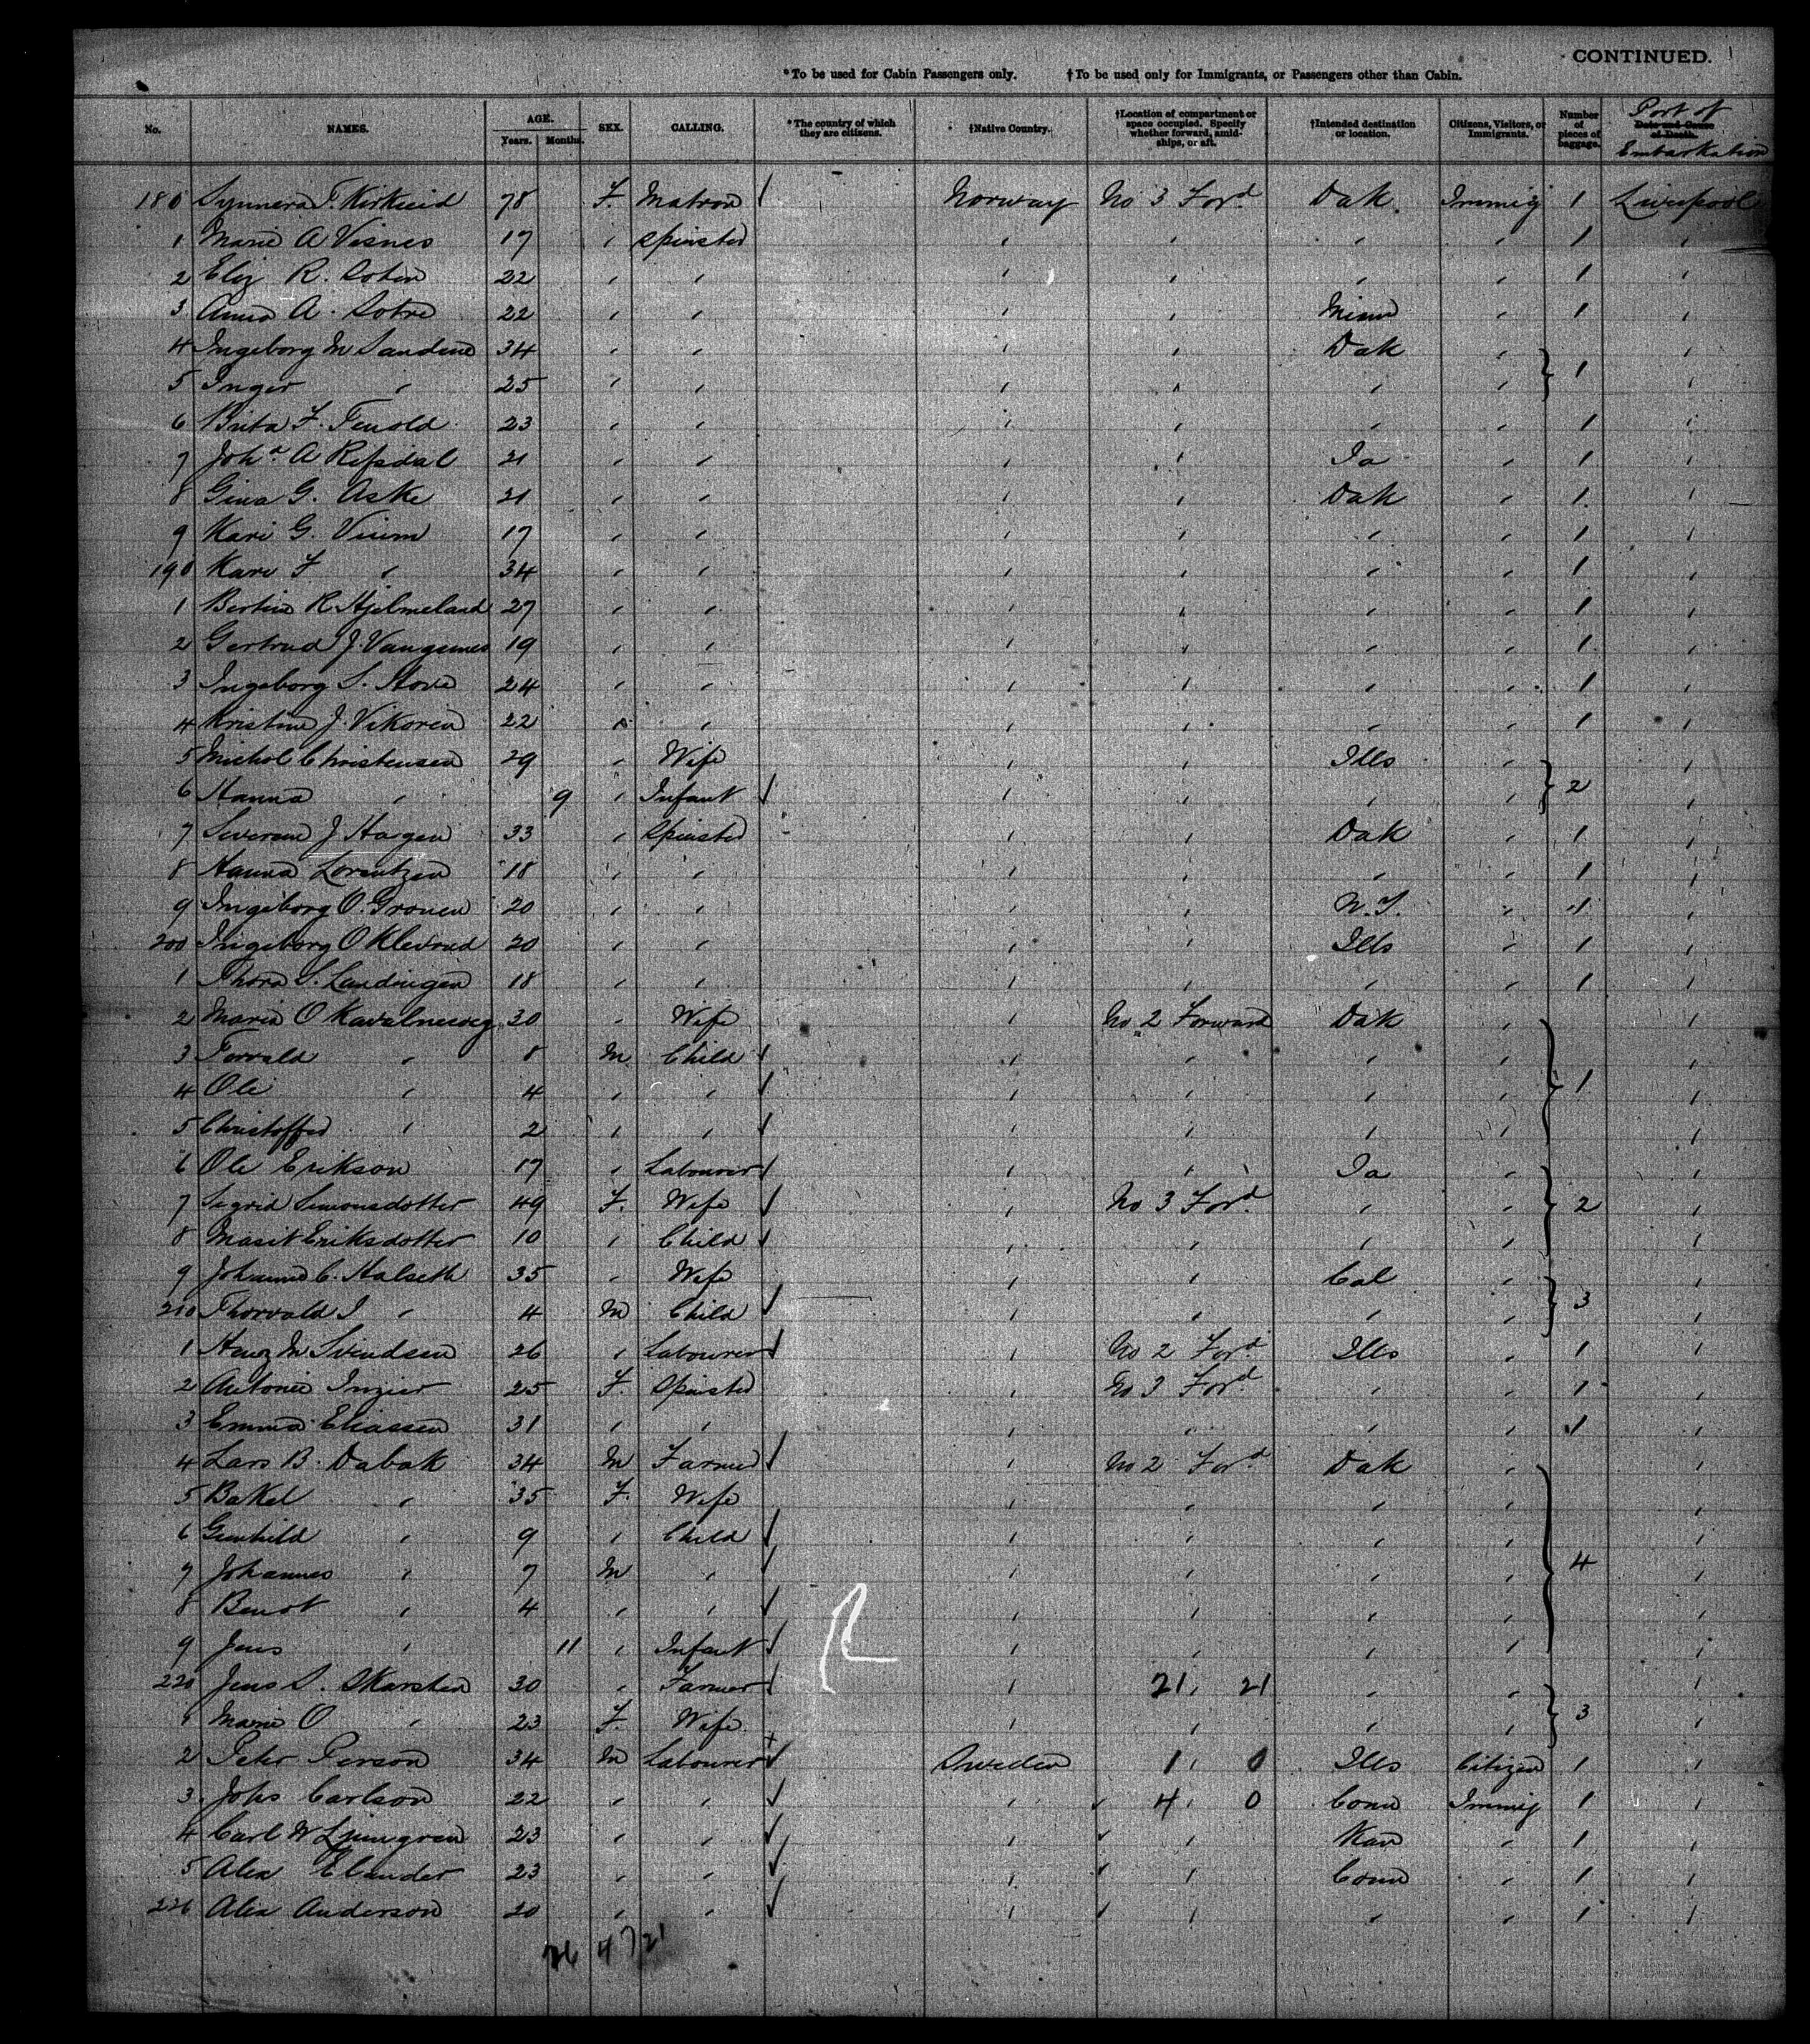 CONTINUED.
*To be used for Cabin Passengers only. †To be used only for Immigrants, or Passengers other than Cabin.
No. NAMES. AGE. Years. Months. SEX. CALLING. *The country of which they are citizens. †Native Country. †Location of compartment or space occupied. Specify whether forward, amidships, or aft. †Intended destination or location. Citizens, Visitors, or Immigrants. Number of pieces of baggage. Date and Cause of Death. Port of Embarkation
180 Synneva T. 78 F. Matron Norway No 3 Ford Dak. Immig 1 Liverpool
1 Marie A Visnes 17 " Spinster " " " " 1 "
2 Eliz R. 22 " " " " " " 1 "
3 Anna A. Sotre 22 " " " " Minn " 1 "
4 Ingeborg M Sandene 34 " " " " Dak " "
5 Inger " 25 " " " " " " 1 "
6 Brita F. Tenold 23 " " " " " " 1 "
7 Joha A Refsdal 21 " " " " Ia " 1 "
8 Gina G. Aske 21 " " " " Dak " 1 "
9 Kari G. Vium 17 " " " " " " 1 "
190 Kari F " 34 " " " " " " 1 "
1 Bertina R Hjelmeland 27 " " " " " " 1 "
2 Gertrud J. Vangsnes 19 " " " " " " 1 "
3 Ingeborg S. Hove 24 " " " " " " 1 "
4 Kristine J. Vikoren 22 " " " " " " 1 "
5 Michol Christensen 29 " Wife " " Ills " "
6 Hanna " 9 " Infant " " " " 2 "
7 Severine J Hagen 33 " Spinster " " Dak " 1 "
8 Hanna Lorentzen 18 " " " " " " 1 "
9 Ingeborg O. Gronen 20 " " " " " 1 "
200 Ingeborg O Klevrud 20 " " " " Ills " 1 "
1 Thora S. Landingen 18 " " " " " " 1 "
2 Maria O 30 " Wife " No 2 Forward Dak " "
3 Torvald " 8 M Child " " " " "
4 Ole " 4 " " " " " " 1 "
5 Christoffer " 2 " " " " " " "
6 Ole Erikson 17 " Labourer " " Ia " "
7 Sigrid Simonsdotter 49 F. Wife " No 3 Ford " " 2 "
8 Masit Eriksdotter 10 " Child " " " " "
9 Johanne C. Halseth 35 " Wife " " Cal " "
210 Thorvald J " 4 M Child " " " " 3 "
1 Hans M Svendsen 26 " Labourer " No 2 Ford Ills " 1 "
2 Antonie Inzier 25 F. Spinster " No 3 Ford " " 1 "
3 Emma Eliassen 31 " " " " " " 1 "
4 Lars B. Dabak 34 M Farmer " No 2 Ford Dak " "
5 Bakel " 35 F. Wife " " " " "
6 Gunhild " 9 " Child " " " " "
7 Johannes " 7 M " " " " " 4 "
8 Bendt " 4 " " " " " " "
9 Jens " 11 " Infant " " " " "
220 Jens S. Skarsten 30 " Farmer " 21 " 21 " " "
1 Marie O " 23 F. Wife " " " " 3 "
2 Peter Person 34 M Labourer Sweden 1 " 0 Ills Citizen 1 "
3 Johs Carlson 22 " " " 4 " 0 Conn Immig 1 "
4 Carl W Ljungren 23 " " " " Kan " 1 "
5 Alex Elander 23 " " " " Conn " 1 "
226 Alex Anderson 20 " " " " " " 1 "
26 4 7 21